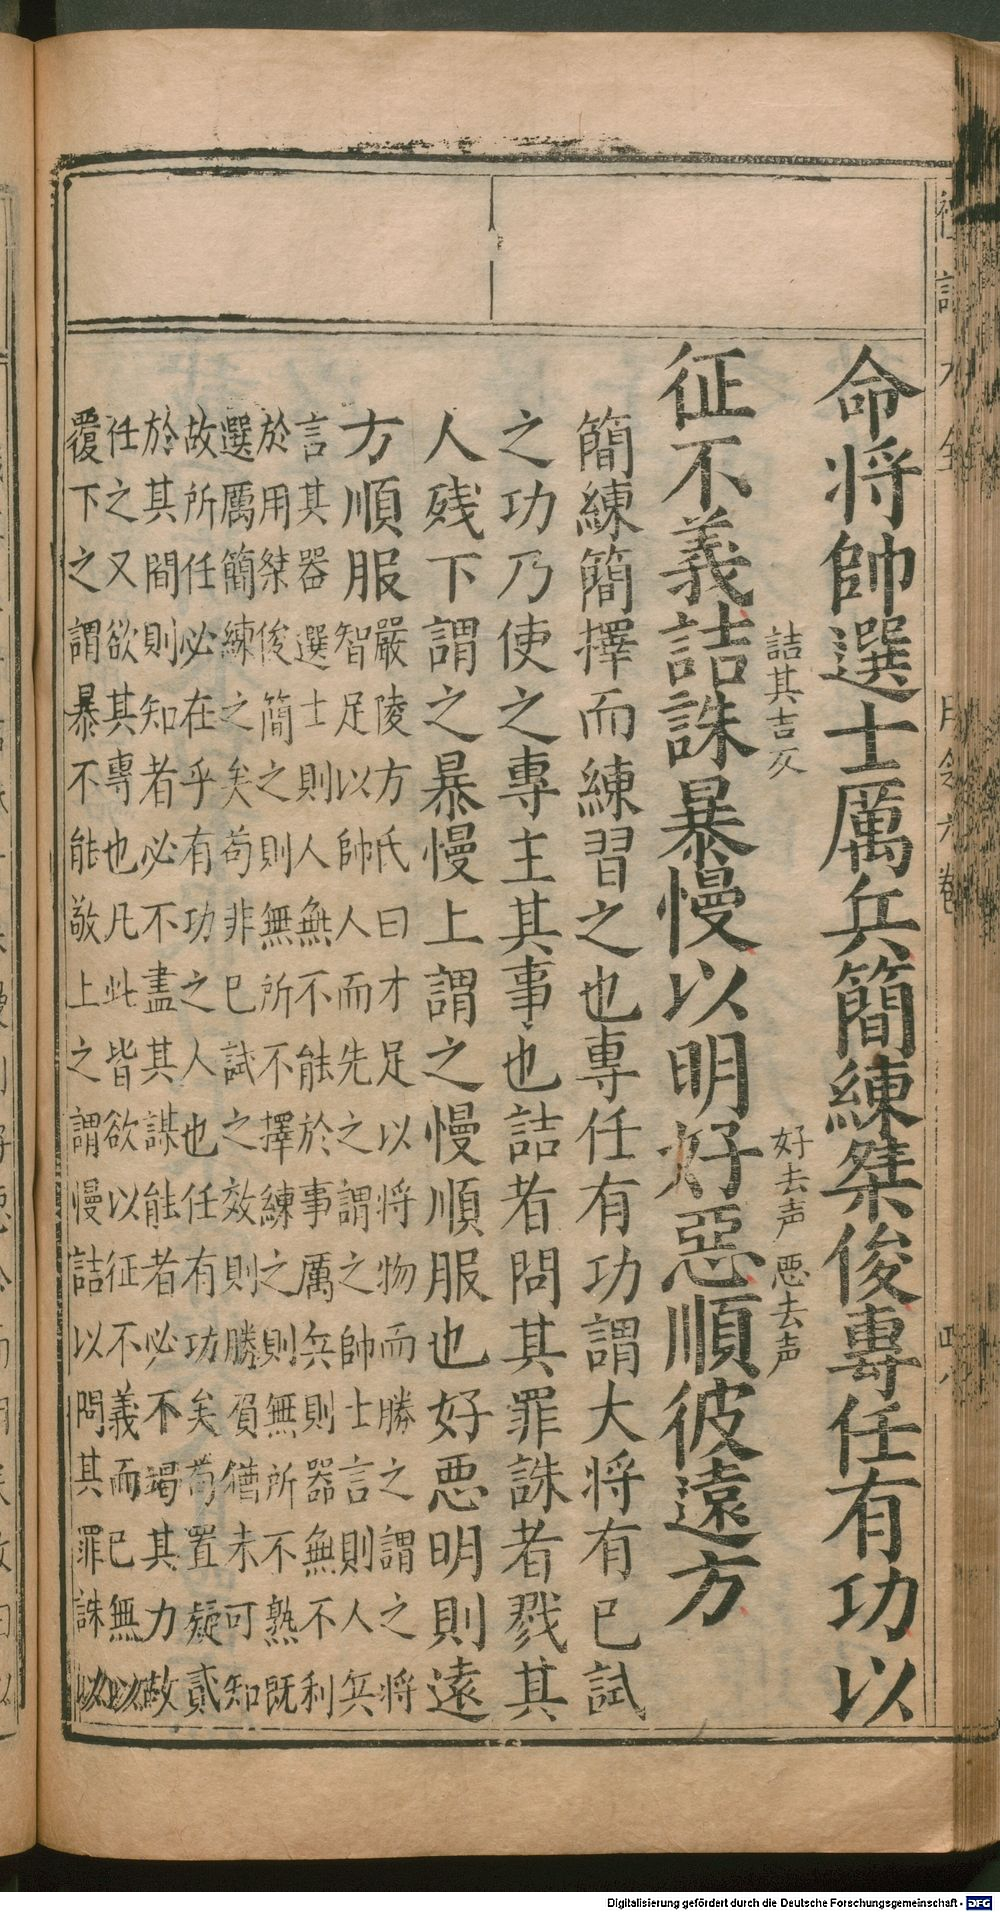 命将帥選士厲兵簡練桀俊專任有功以
詰其吉反
好去声惡去声
征不義詰誅暴慢以明好惡順彼遠方
簡練簡擇而練習之也專任有功謂大将有已試
之功乃使之專主其事也詰者問其罪誅者戮其
人残下謂之暴慢上謂之慢順服也好惡明則遠
方順服
嚴陵方氏曰才足以将物而勝之謂之将
智足以帥人而先之謂之帥士言則人兵
言其器選士則人無不能於事厲兵則器無不利
於用桀俊簡之則無所不擇練之則無所不熟既
選厲簡練之矣苟非已試之效則勝負猶未可知
故所任必在乎有功之人也任有功矣苟置疑貳
於其間則知者必不盡其謀能者必不竭其力故
任之又欲其專也凡此皆欲以征不義而已無以
覆下之謂暴不能敬上之謂慢詰以問其罪誅以
Digitalisierung gefördert durch die Deutsche Forschungsgemeinschaft - DFG